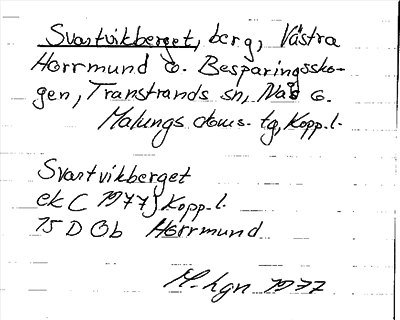 Svartvikberget, berg, Västra
Horrmund o. Besparingssko-
gen, Transtrands sn, Nås o.
Malungs doms. tg, Kopp. l.
Svartvikberget
ek C 1977} Kopp. l.
15 D Ob Horrmund
M-hgn 1977